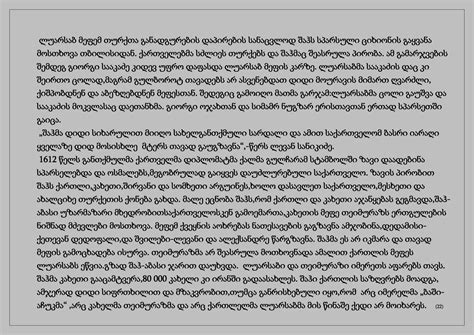 ლუარსაბ მეფემ თურქთა განადგურების დაპირების სანაცვლოდ შაჰს სპარსული ციხიონის გაყვანა
მოსთხოვა თბილისიდან. ქართველებმა სძლიეს თურქებს და შაჰმაც შეასრულა პირობა. ამ გამარჯვების
შემდეგ გიორგი სააკაძე კიდევ უფრო დაფასდა ლუარსაბ მეფის კარზე. ლუარსაბმა სააკაძის დაც კი
შეირთო ცოლად,მაგრამ გულბოროტ თავადებს არ ასვენებდათ დიდი მოურავის მიმართ ღვარძლი,
ქიშპობდნენ და აბეზღებდნენ მეფესთან. შედეგიც გამოიღო მათმა გარჯამ:ლუარსაბმა ცოლი გაუშვა და
სააკაძის მოკვლასაც დაეთანხმა. გიორგი ოჯახთან და სიმამრ ნუგზარ ერისთავთან ერთად სპარსეთში
გაიცა.
„შაჰმა დიდი სიხარულით მიიღო სახელგანთქმული სარდალი და ამით საქართველომ ბასრი იარაღი
ყველაზე დიდ მოსისხლე მტერს თავად გაუგზავნა“,-წერს ლევან სანიკიძე.
1612 წელს განთქმულმა ქართველმა დიპლომატმა ქალმა გულჩარამ სტამბოლში ზავი დაადებინა
სპარსელებსა და ოსმალებს,მეგობრულად გაიყვეს დაუძლურებული საქართველო. ზავის პირობით
შაჰს ქართლი,კახეთი,შირვანი და სომხეთი არგუინეს,ხოლო დასავლეთ საქართველო,მესხეთი და
ახალციხე თურქეთის ქონება გახდა. მალე ეცნობა შაჰს,რომ ქართლი და კახეთი აჯანყებას გეგმავდა,შაჰ-
აბასი უზარმაზარი მხედრობითსაქართველოსკენ გამოემართა,კახეთის მეფე თეიმურაზს ერთგულების
ნიშნად მძევლები მოსთხოვა. მეფემ ქვეყნის აოხრებას ნათესავების გაგზავნა ამჯობინა,დედამისი-
ქეთევან დედოფალი,და შვილები-ლევანი და ალექსანდრე წარგზავნა. შაჰმა ეს არ იკმარა და თავად
მეფის გამოცხადება ისურვა. თეიმურაზმა არ შეასრულა მოთხოვნადა ამალით ქართლის მეფეს
ლუარსაბს ეწვია.გზად შაჰ-აბასი ჯარით დაუხვდა. ლუარსაბი და თეიმურაზი იმერეთს აფარებს თავს.
შაჰმა კახეთი გაავრანა,80 000 კახელი კი ირანში გადაასახლა. შაჰი ქართლის საზღვრებს მოადგა,
ამჯერად დიდი სიფრთხილით და მზაკვრობით,თუმცა განრისხებული იყო,რომ არც იმერელმა „ბაში-
აჩუკმა“ ,არც კახელმა თეიმურაზმა და არც ქართლელმა ლუარსაბმა მის წინაშე ქედი არ მოიხარეს. (22)